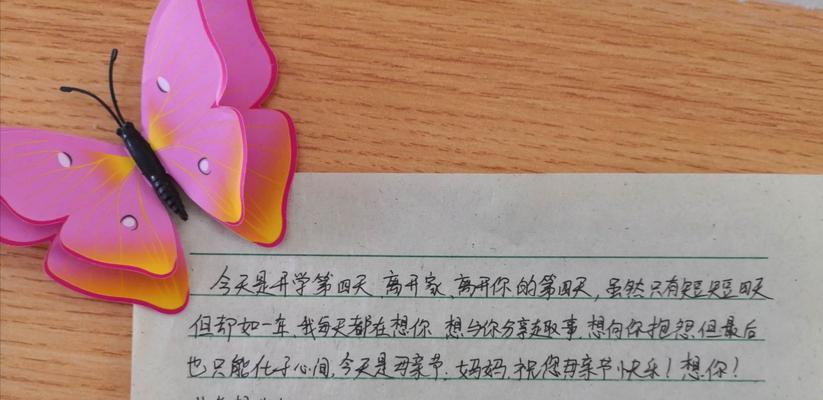 今天是开学第四天、离开家、离开你的第四天,虽然只有短短四天
但却如一年,我每天都在想你、想与你分享趣事、想向你抱怨,但最后
也只能化于心间,今天是母亲节,妈妈,祝您母亲节快乐!想你!